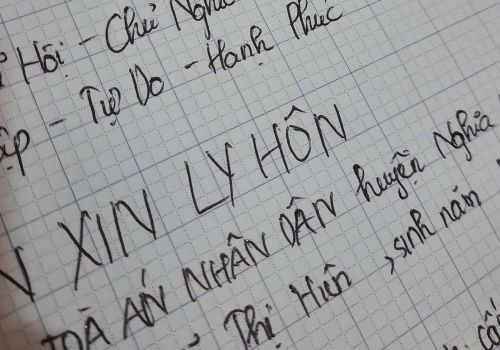 Hội - Chủ Nghĩa
- Tự Do - Hạnh Phúc
XIN LY HÔN
TOÀ ÁN NHÂN DÂN huyện Nghĩa
Thị Hiền, sinh năm